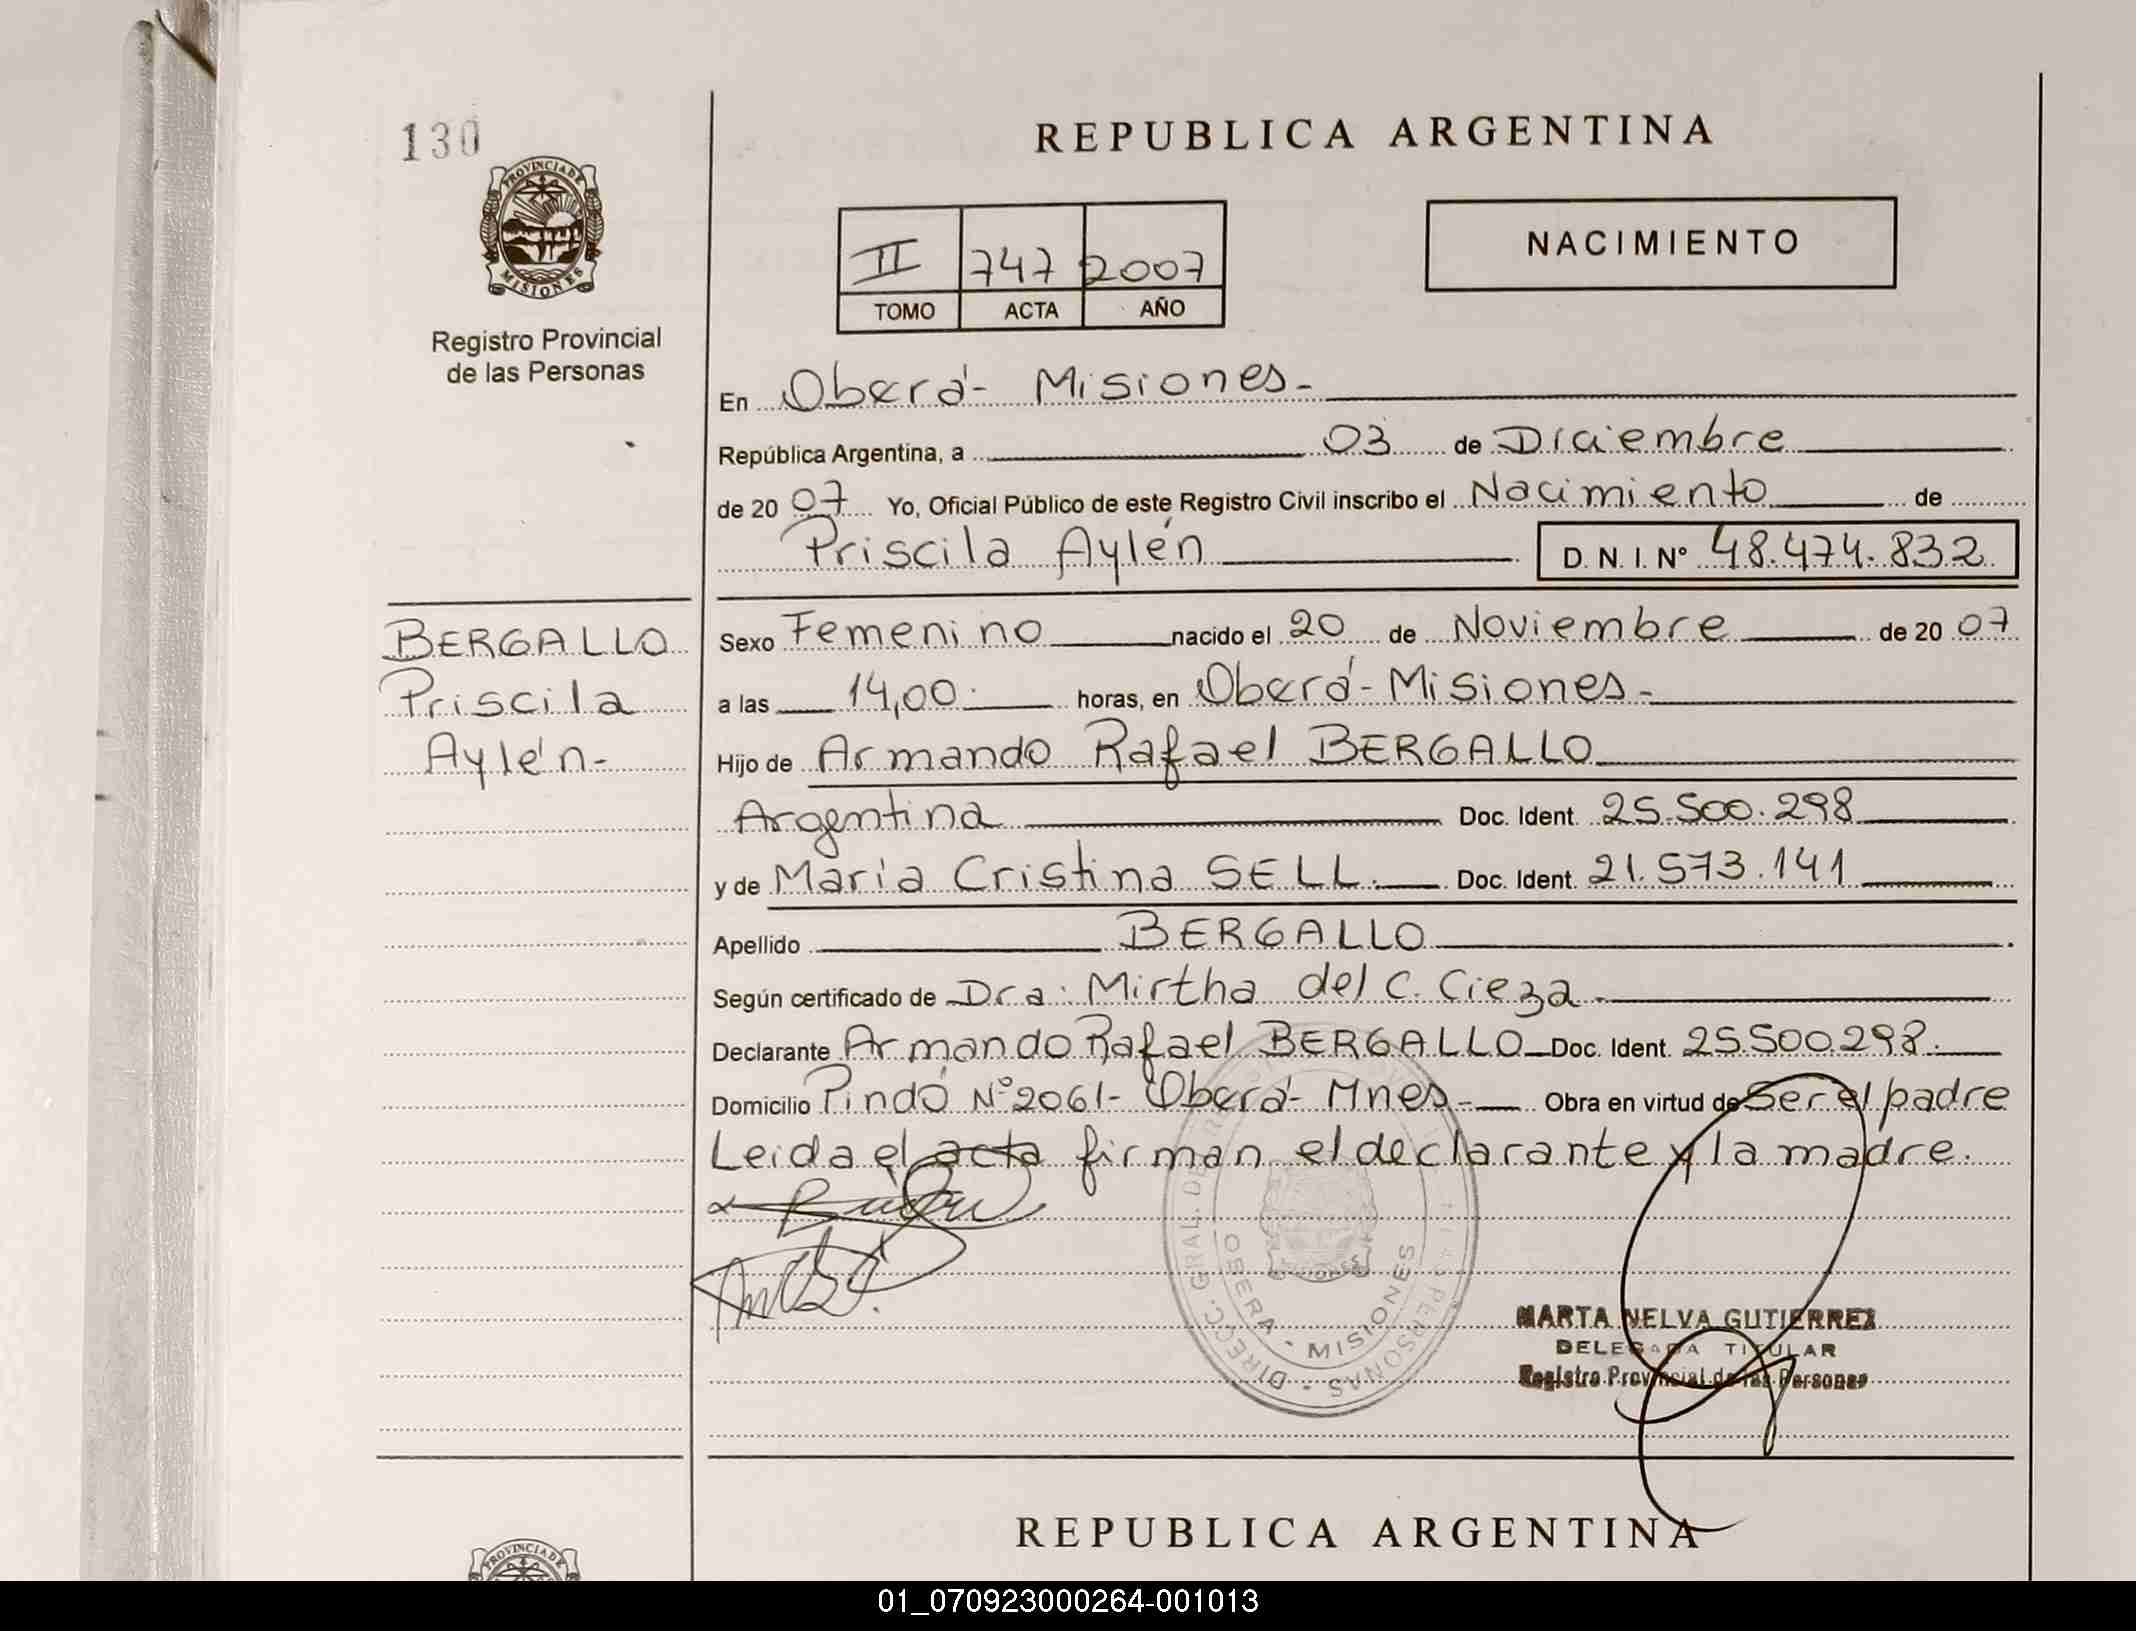 130
PROVINCIA DE
MISIONES
Registro Provincial
de las Personas
REPUBLICA ARGENTINA
II 747 2007
TOMO ACTA AÑO
NACIMIENTO
En Oberá- Misiones-
República Argentina, a 03 de Diciembre
de 20 07 Yo, Oficial Público de este Registro Civil inscribo el Nacimiento de
Priscila Aylén D. N. I. Nº 48.474.832
BERGALLO
Priscila
Aylén-
Sexo Femenino nacido el 20 de Noviembre de 20 07
a las 14,00. horas, en Oberá- Misiones-
Hijo de Armando Rafael BERGALLO
Argentina Doc. Ident. 25.500.298
y de María Cristina SELL. Doc. Ident. 21.573.141
Apellido BERGALLO
Según certificado de Dra. Mirtha del C. Cieza.
Declarante Armando Rafael BERGALLO Doc. Ident. 25.500.298.
Domicilio Pindó Nº 2061- Oberá- Mnes- Obra en virtud de Ser el padre
Leida el acta firman el declarante y la madre.
DIRECC. GRAL. DE PERSONAS
OBERA - MISIONES
MARTA NELVA GUTIERREZ
DELEGADA TITULAR
Registro Provincial de las Personas
REPUBLICA ARGENTINA
PROVINCIA DE
01_070923000264-001013